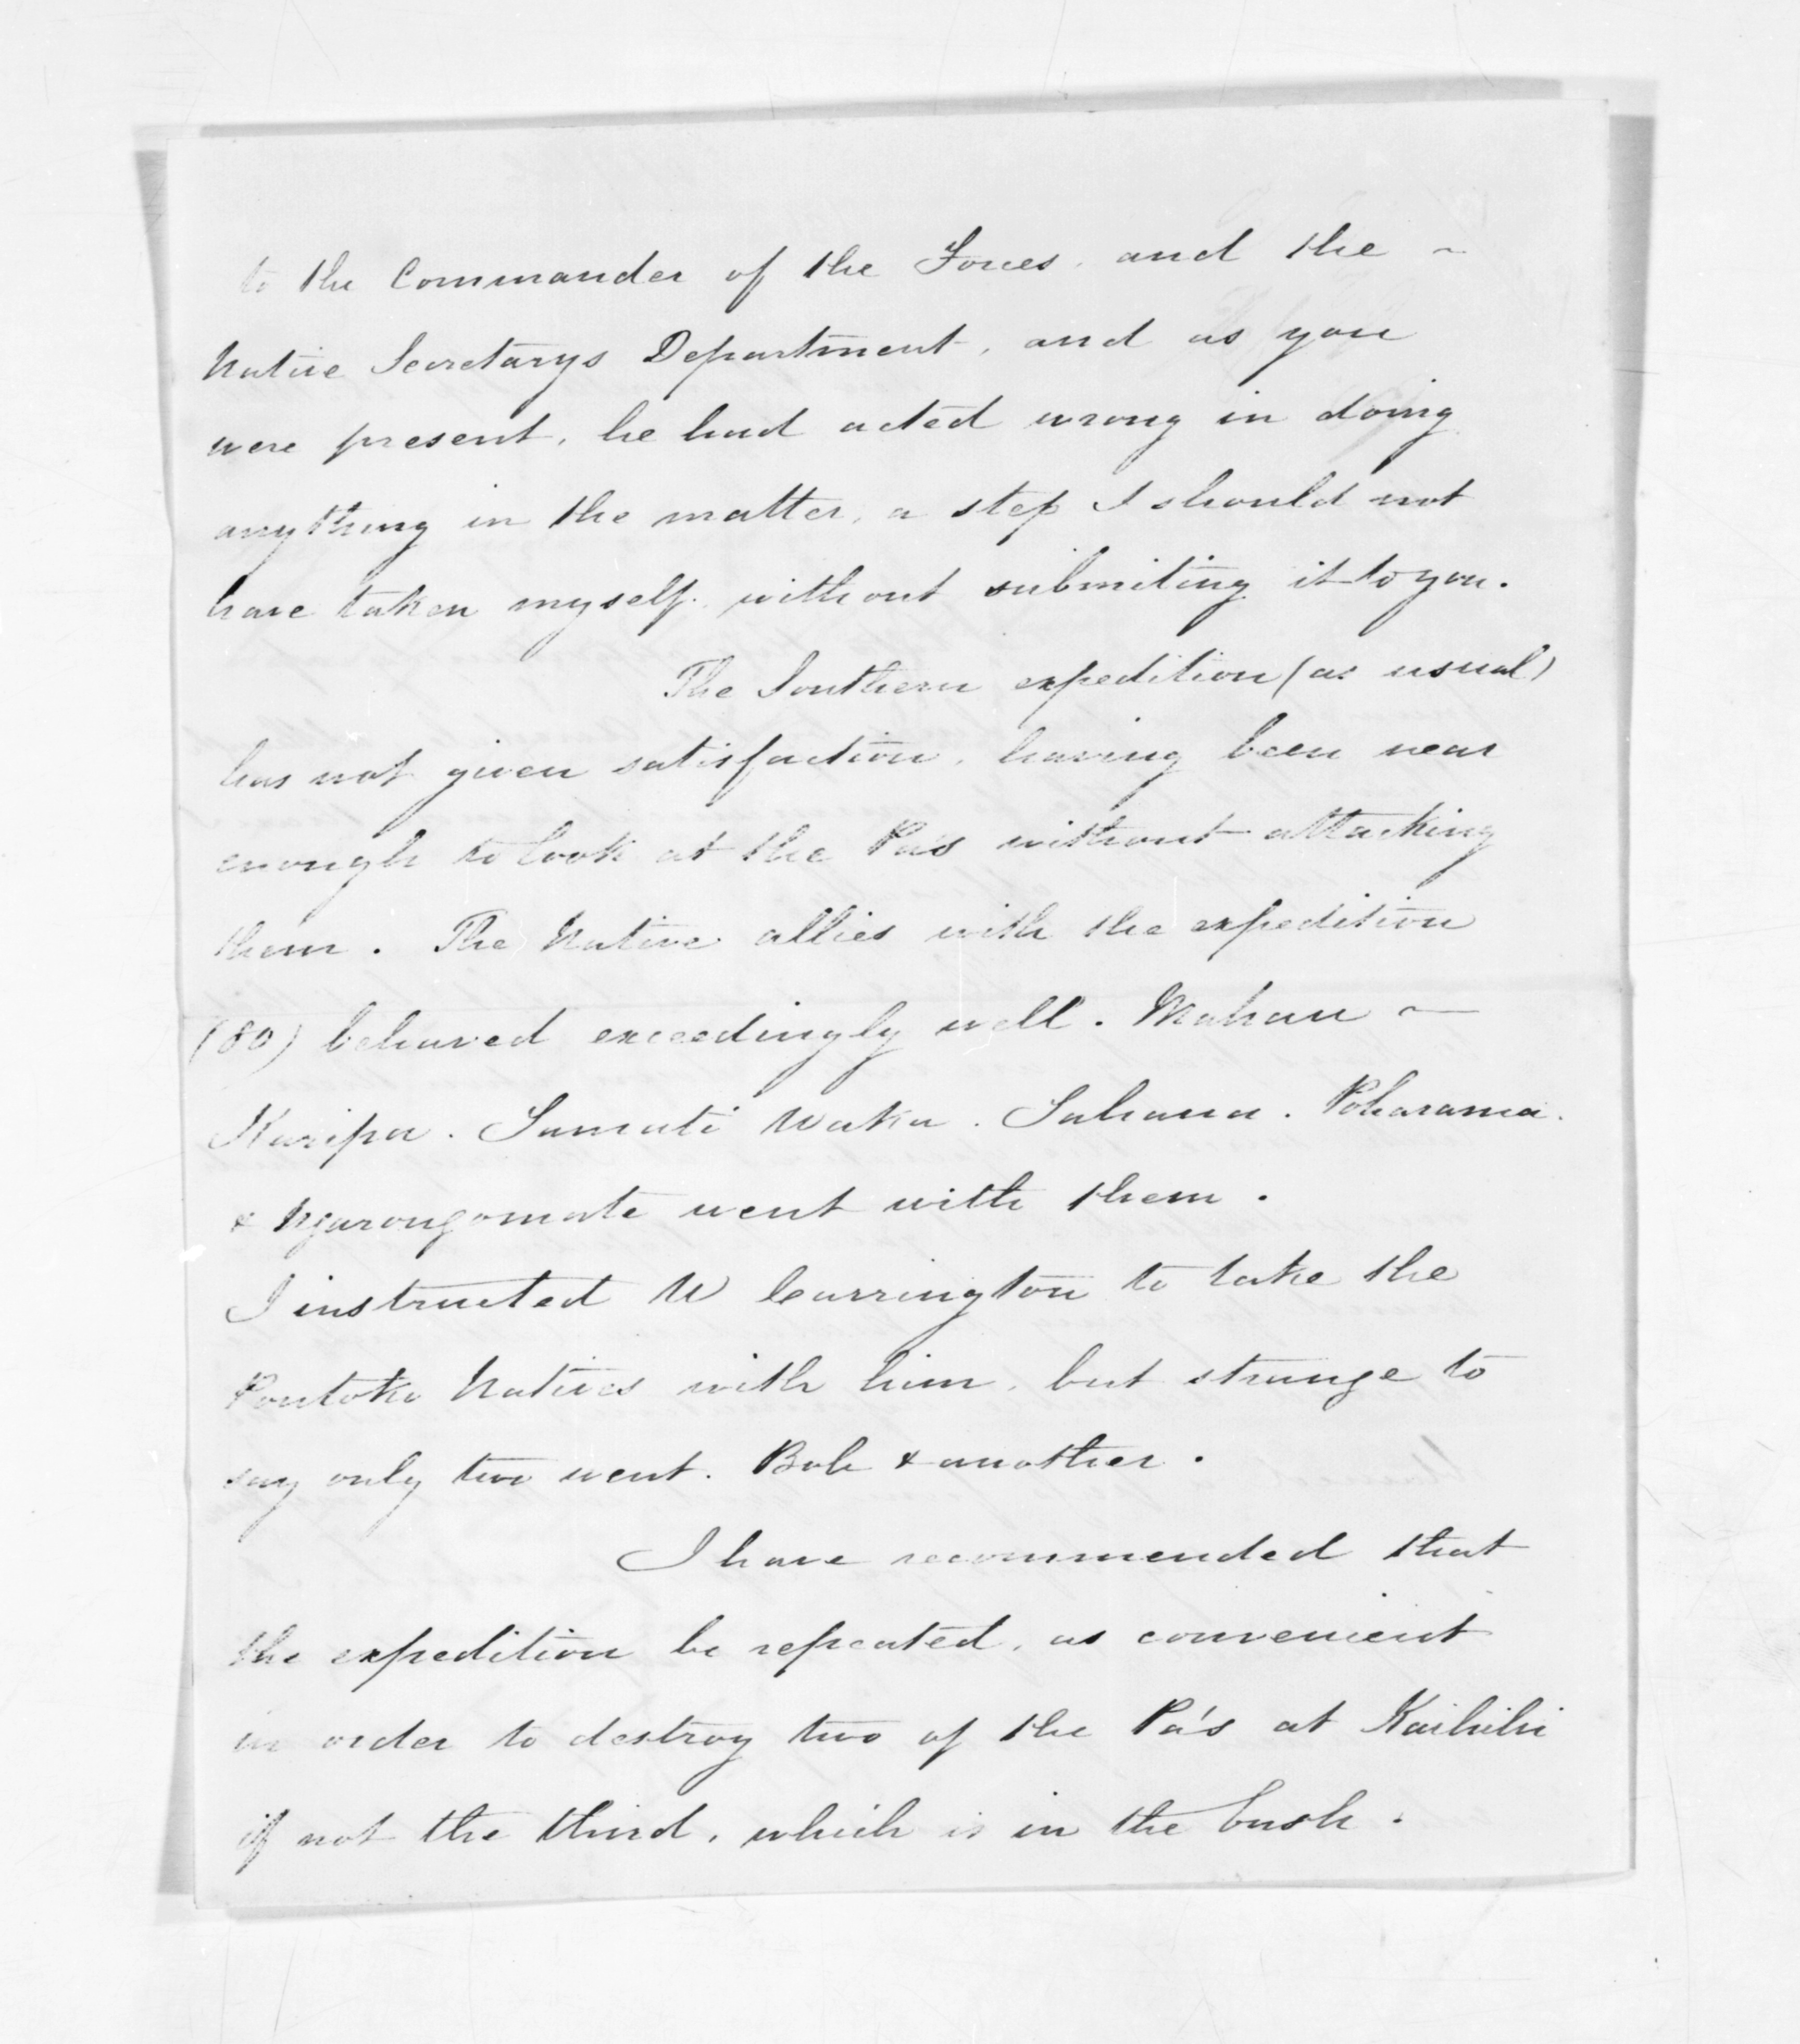 to the Commander of the Forces, and the ~
Native Secretarys Department, and as you
were present, he had acted wrong in doing
anything in the matter, a step I should not
have taken myself, without submiting it to you.
The Southern expedition (as usual)
has not given satisfaction, having been near
enough to look at the Pa's without attacking
them. The Native allies with the expedition
(80) behaved exceedingly well. Mahau ~
Karipa. Tamati Waka. Tahana. Poharama.
& Ngarongomate went with them.
I instructed W Carrington to take the
Poutoko Natives with him, but strange to
say only two went. Bob & another.
I have recommended that
the expedition be repeated, as convenient
in order to destroy two of the Pa's at Kaihihi
if not the third, which is in the bush.